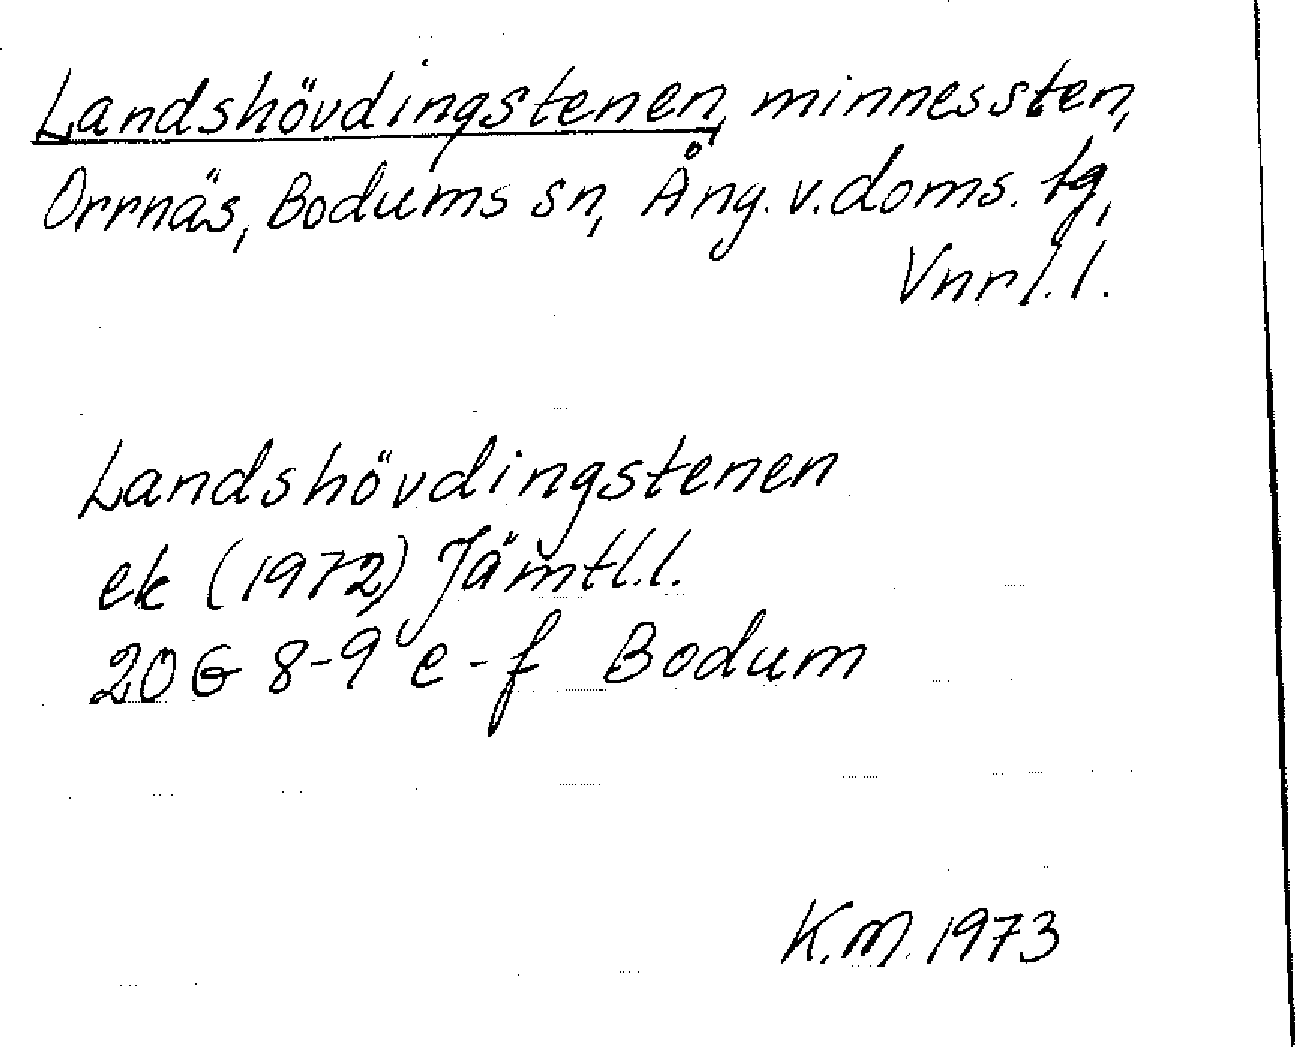 Landshövdingstenen, minnessten,
Orrnäs, Bodums sn, Ång. v. doms. tg,
Vnrl. l.
Landshövdingstenen
ek (1972) Jämtl. l.
20 G 8-9 e-f Bodum
K.M. 1973